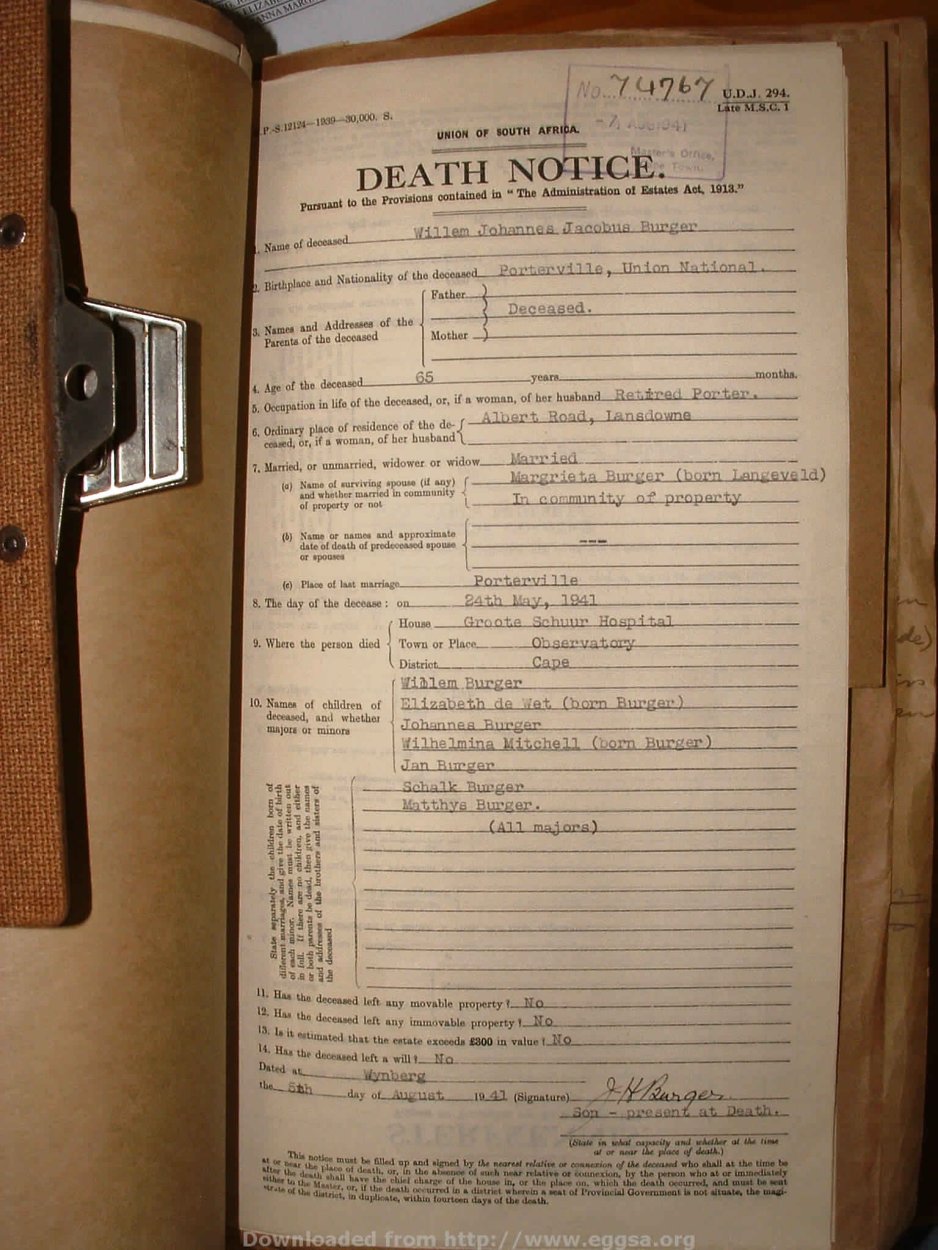 ANNA MARG
No. 74767
U.D.J. 294.
Late M.S.C. 1
P.-S.12124—1939—30,000. S.
- 7 AUG 1941
UNION OF SOUTH AFRICA.
Master's Office,
Cape Town.
DEATH NOTICE.
Pursuant to the Provisions contained in “ The Administration of Estates Act, 1913.”
1. Name of deceased Willem Johannes Jacobus Burger
2. Birthplace and Nationality of the deceased Porterville, Union National.
3. Names and Addresses of the Parents of the deceased
Father
Deceased.
Mother
4. Age of the deceased 65 years months.
5. Occupation in life of the deceased, or, if a woman, of her husband Retired Porter.
6. Ordinary place of residence of the de- Albert Road, Lansdowne
ceased, or, if a woman, of her husband
7. Married, or unmarried, widower or widow Married
(a) Name of surviving spouse (if any) Margrieta Burger (born Langeveld)
and whether married in community In community of property
of property or not
(b) Name or names and approximate
date of death of predeceased spouse ---
or spouses
(c) Place of last marriage Porterville
8. The day of the decease : on 24th May, 1941
House Groote Schuur Hospital
9. Where the person died Town or Place Observatory
District Cape
Willem Burger
10. Names of children of Elizabeth de Wet (born Burger)
deceased, and whether Johannes Burger
majors or minors
Wilhelmina Mitchell (born Burger)
Jan Burger
Schalk Burger
Matthys Burger.
(All majors)
State separately the children born of
different marriages, and give the date of birth
of each minor. Names must be written out
in full. If there are no children, and either
or both parents be dead, then give the names
and addresses of the brothers and sisters of
the deceased
11. Has the deceased left any movable property ? No
12. Has the deceased left any immovable property ? No
13. Is it estimated that the estate exceeds £300 in value ? No
14. Has the deceased left a will ? No
Dated at Wynberg
the 5th day of August 1941 (Signature) J H Burger
Son - present at Death.
(State in what capacity and whether at the time
at or near the place of death.)
This notice must be filled up and signed by the nearest relative or connexion of the deceased who shall at the time be
at or near the place of death, or, in the absence of such near relative or connexion, by the person who at or immediately
after the death shall have the chief charge of the house in, or the place on, which the death occurred, and must be sent
either to the Master, or, if the death occurred in a district wherein a seat of Provincial Government is not situate, the magi-
strate of the district, in duplicate, within fourteen days of the death.
Downloaded from http://www.eggsa.org